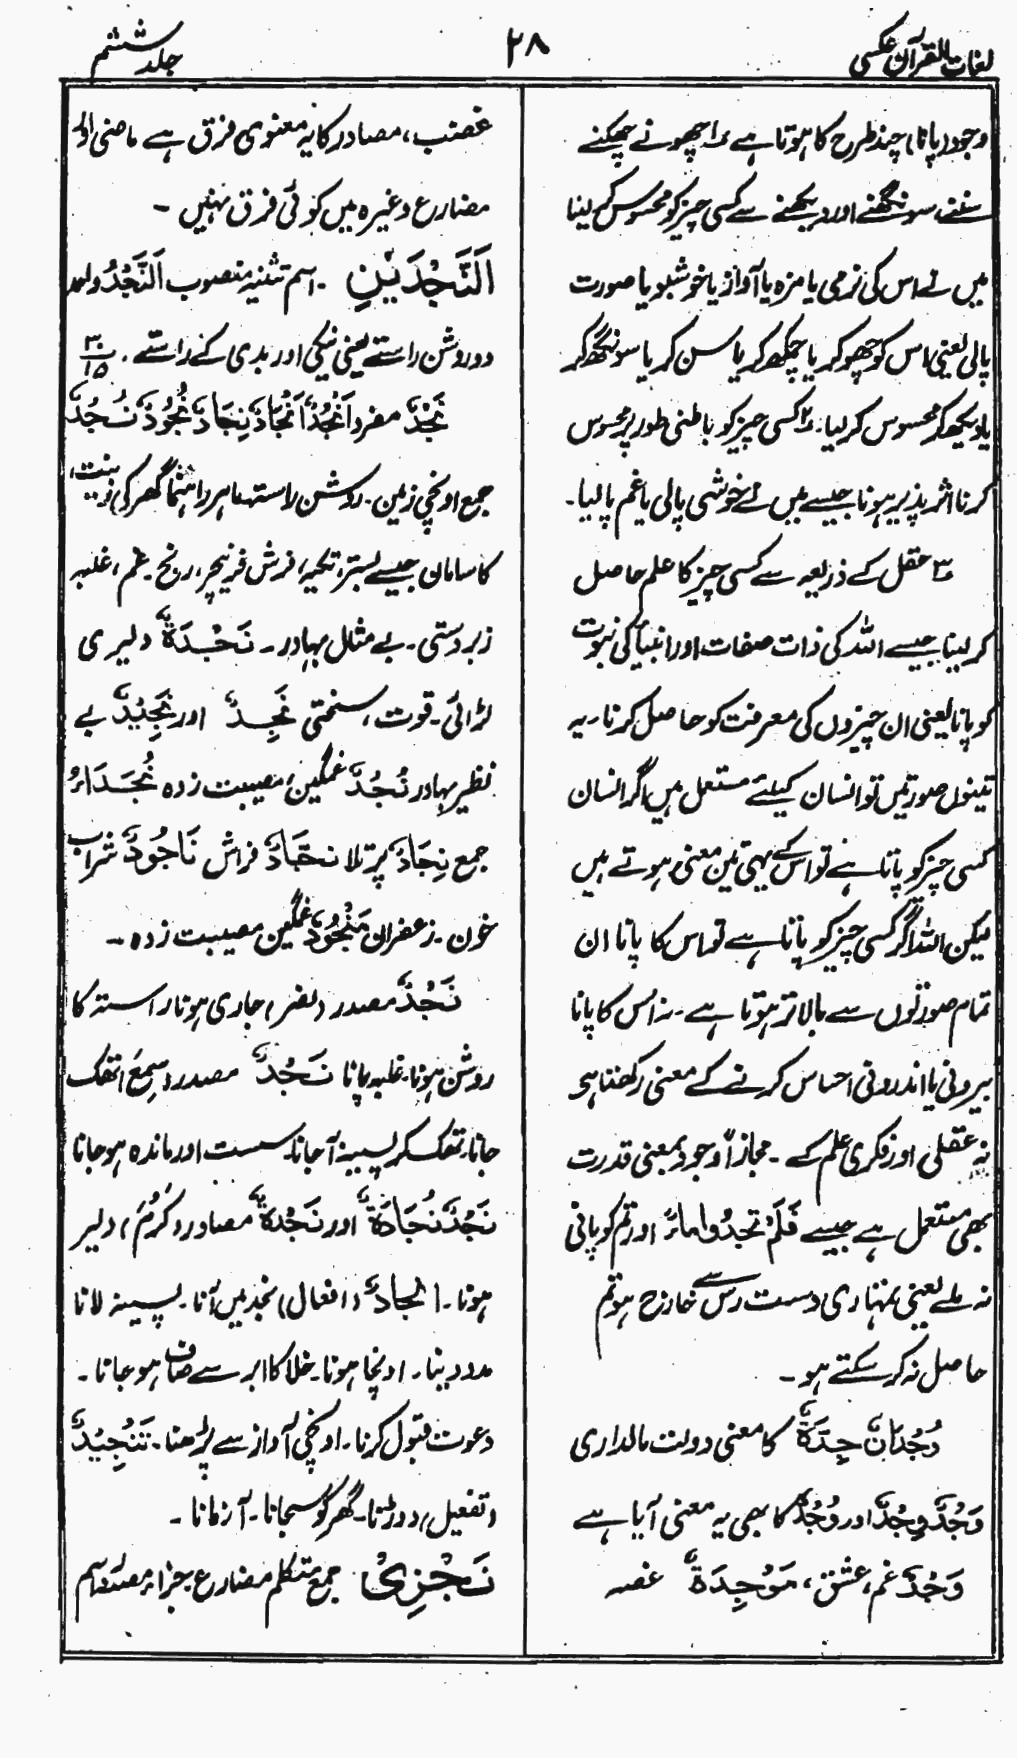 لغات القرآن عکسی
۲۸
جلد ششم
وجود (پانا) چند طرح کا ہوتا ہے ۱؎ چھونے چکھنے
سننے سونگھنے اور دیکھنے سے کسی چیز کو محسوس کر لینا
میں نے اس کی نرمی یا مزہ یا آواز یا خوشبو یا صورت
پالی یعنی اس کو چھو کر یا چکھ کر یا سن کر یا سونگھ کر
یا دیکھ کر محسوس کر لیا۔ ۲؎ کسی چیز کو باطنی طور پر محسوس
کرنا اثر پذیر ہونا جیسے میں نے خوشی پالی یا غم پالیا۔
۳؎ عقل کے ذریعہ سے کسی چیز کا علم حاصل
کر لینا جیسے اللہ کی ذات صفات اور انبیاؑ کی نبوت
کو پانا یعنی ان چیزوں کی معرفت کو حاصل کرنا۔ یہ
تینوں صورتیں تو انسان کیلئے مستعمل ہیں اگر انسان
کسی چیز کو پاتا ہے تو اس کے یہی تین معنی ہوتے ہیں
لیکن اللہ اگر کسی چیز کو پاتا ہے تو اس کا پانا ان
تمام صورتوں سے بالاتر ہوتا ہے۔ نہ اس کا پانا
بیرونی یا اندرونی احساس کرنے کے معنی رکھتا ہے
نہ عقلی اور فکری علم کے۔ مجازاً وجود بمعنی قدرت
بھی مستعمل ہے جیسے فَلَمْ تَجِدُوا مَاءً اور تم کو پانی
نہ ملے یعنی تمہاری دست رس سے خارج ہو تم
حاصل نہ کر سکتے ہو۔
وُجْدَانٌ جِدَةٌ کا معنی دولت مالداری
وَجْدٌ وِجْدٌ اور وُجْدٌ کا بھی یہ معنی آیا ہے
وَجْدٌ غم، عشق، مَوْجِدَةٌ غصہ
غضب، مصادر کا یہ معنوی فرق ہے ماضی اور
مضارع وغیرہ میں کوئی فرق نہیں۔
اَلنَّجْدَیْنِ۔ اسم تثنیہ منصوب اَلنَّجْدُ واحد
دو روشن راستے یعنی نیکی اور بدی کے راستے۔ ۳۰/۱۵
نَجْدٌ مفرد اَنْجُدٌ اَنْجَادٌ نِجَادٌ نُجُوْدٌ نُجُدٌ
جمع اونچی زمین۔ روشن راستہ ماہر راہنما گھر کی زینت،
کا سامان جیسے بستر، تکیہ، فرش فرنیچر، رنج۔ غم، غلبہ
زبردستی۔ بے مثال بہادر۔ نَجْدَةٌ دلیری
لڑائی۔ قوت، سختی نَجِدٌ اور نَجِیْدٌ بے
نظیر بہادر نُجُدٌ غمگین، مصیبت زدہ نُجَدَاءُ
جمع نِجَادٌ پرتلا نَجَّادٌ فراش نَاجُوْدٌ شراب
خون۔ زعفران مَنْجُوْدٌ غمگین مصیبت زدہ۔
نَجْدٌ مصدر (نصر) جاری ہونا راستہ کا
روشن ہونا۔ غلبہ پانا نَجَدٌ مصدر (سَمِعَ) تھک
جانا۔ تھک کر پسینہ آجانا۔ سست اور ماندہ ہو جانا
نَجْدٌ نَجَادَةٌ اور نَجْدَةٌ مصادر (کَرُمَ) دلیر
ہونا۔ اِنْجَادٌ (افعال) نجد میں آنا۔ پسینہ لانا
مدد دینا۔ اونچا ہونا۔ خلا کا ابر سے صاف ہو جانا۔
دعوت قبول کرنا۔ اونچی آواز سے پڑھنا۔ تَنْجِیْدٌ
(تفعیل) دوڑنا۔ گھر کو سجانا۔ آزمانا۔
نَجْزِیْ جمع متکلم مضارع جزاء مصدر اسم